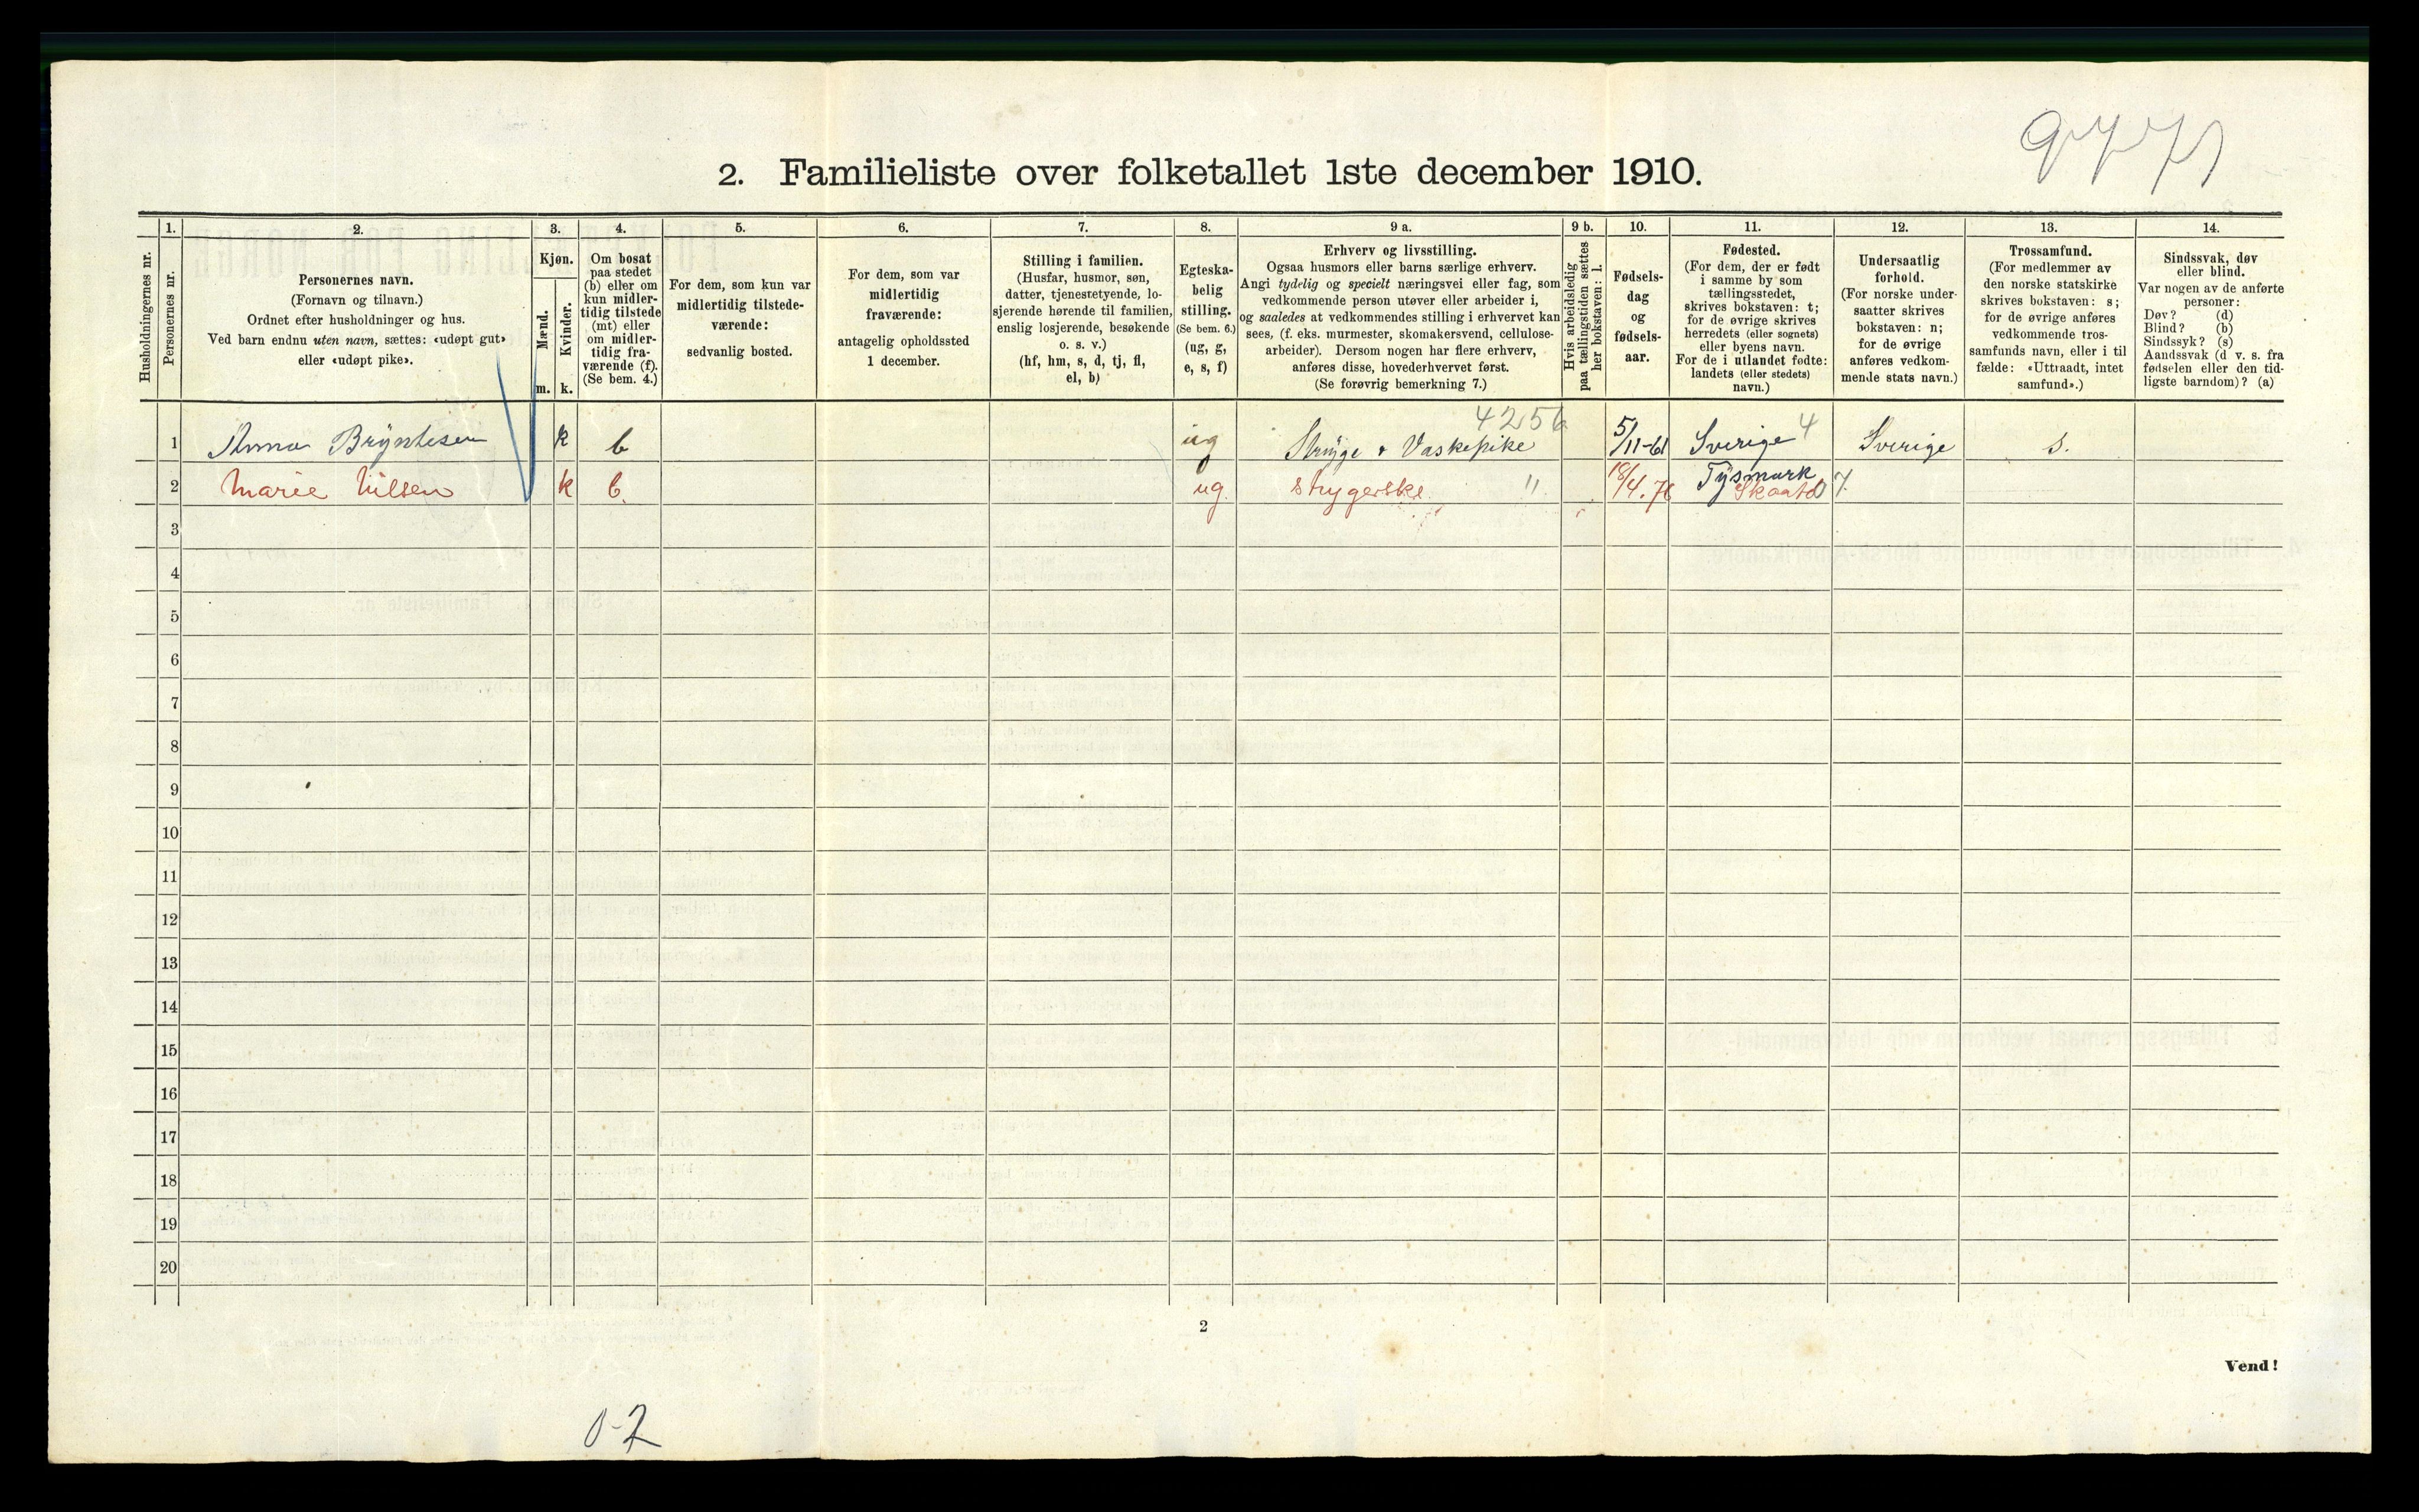 2. Familieliste over folketallet 1ste december 1910.
Husholdningernes nr.
1.
Personernes nr.
2.
Personernes navn.
(Fornavn og tilnavn.)
Ordnet efter husholdninger og hus.
Ved barn endnu uten navn, sættes: «udøpt gut»
eller «udøpt pike».
3.
Kjøn.
Mænd.
m.
Kvinder.
k.
4.
Om bosat
paa stedet
(b) eller om
kun midler-
tidig tilstede
(mt) eller
om midler-
tidig fra-
værende (f).
(Se bem. 4.)
5.
For dem, som kun var
midlertidig tilstede-
værende:
sedvanlig bosted.
6.
For dem, som var
midlertidig
fraværende:
antagelig opholdssted
1 december.
7.
Stilling i familien.
(Husfar, husmor, søn,
datter, tjenestetyende, lo-
sjerende hørende til familien,
enslig losjerende, besøkende
o. s. v.)
(hf, hm, s, d, tj, fl,
el, b)
8.
Egteska-
belig
stilling.
(Se bem. 6.)
(ug, g,
e, s, f)
9 a.
Erhverv og livsstilling.
Ogsaa husmors eller barns særlige erhverv.
Angi tydelig og specielt næringsvei eller fag, som
vedkommende person utøver eller arbeider i,
og saaledes at vedkommendes stilling i erhvervet kan
sees, (f. eks. murmester, skomakersvend, cellulose-
arbeider). Dersom nogen har flere erhverv,
anføres disse, hovederhvervet først.
(Se forøvrig bemerkning 7.)
9 b.
Hvis arbeidsledig
paa tællingstiden sættes
her bokstaven: l.
10.
Fødsels-
dag
og
fødsels-
aar.
11.
Fødested.
(For dem, der er født
i samme by som
tællingsstedet,
skrives bokstaven: t;
for de øvrige skrives
herredets (eller sognets)
eller byens navn.
For de i utlandet fødte:
landets (eller stedets)
navn.)
12.
Undersaatlig
forhold.
(For norske under-
saatter skrives
bokstaven: n;
for de øvrige
anføres vedkom-
mende stats navn.)
13.
Trossamfund.
(For medlemmer av
den norske statskirke
skrives bokstaven: s;
for de øvrige anføres
vedkommende tros-
samfunds navn, eller i til
fælde: «Uttraadt, intet
samfund».)
14.
Sindssvak, døv
eller blind.
Var nogen av de anførte
personer:
Døv? (d)
Blind? (b)
Sindssyk? (s)
Aandssvak (d v. s. fra
fødselen eller den tid-
ligste barndom)? (a)
4256
1 Anna Bryntesen k b ug Stryge & Vaskepike 5/11-61 Sverige 4 Sverige s.
2 Marie Nilsen k b. ug. strygerske " 18/4. 76
3
4
5
6
7
8
9
10
11
12
13
14
15
16
17
18
19
20
2
Vend!
0-2